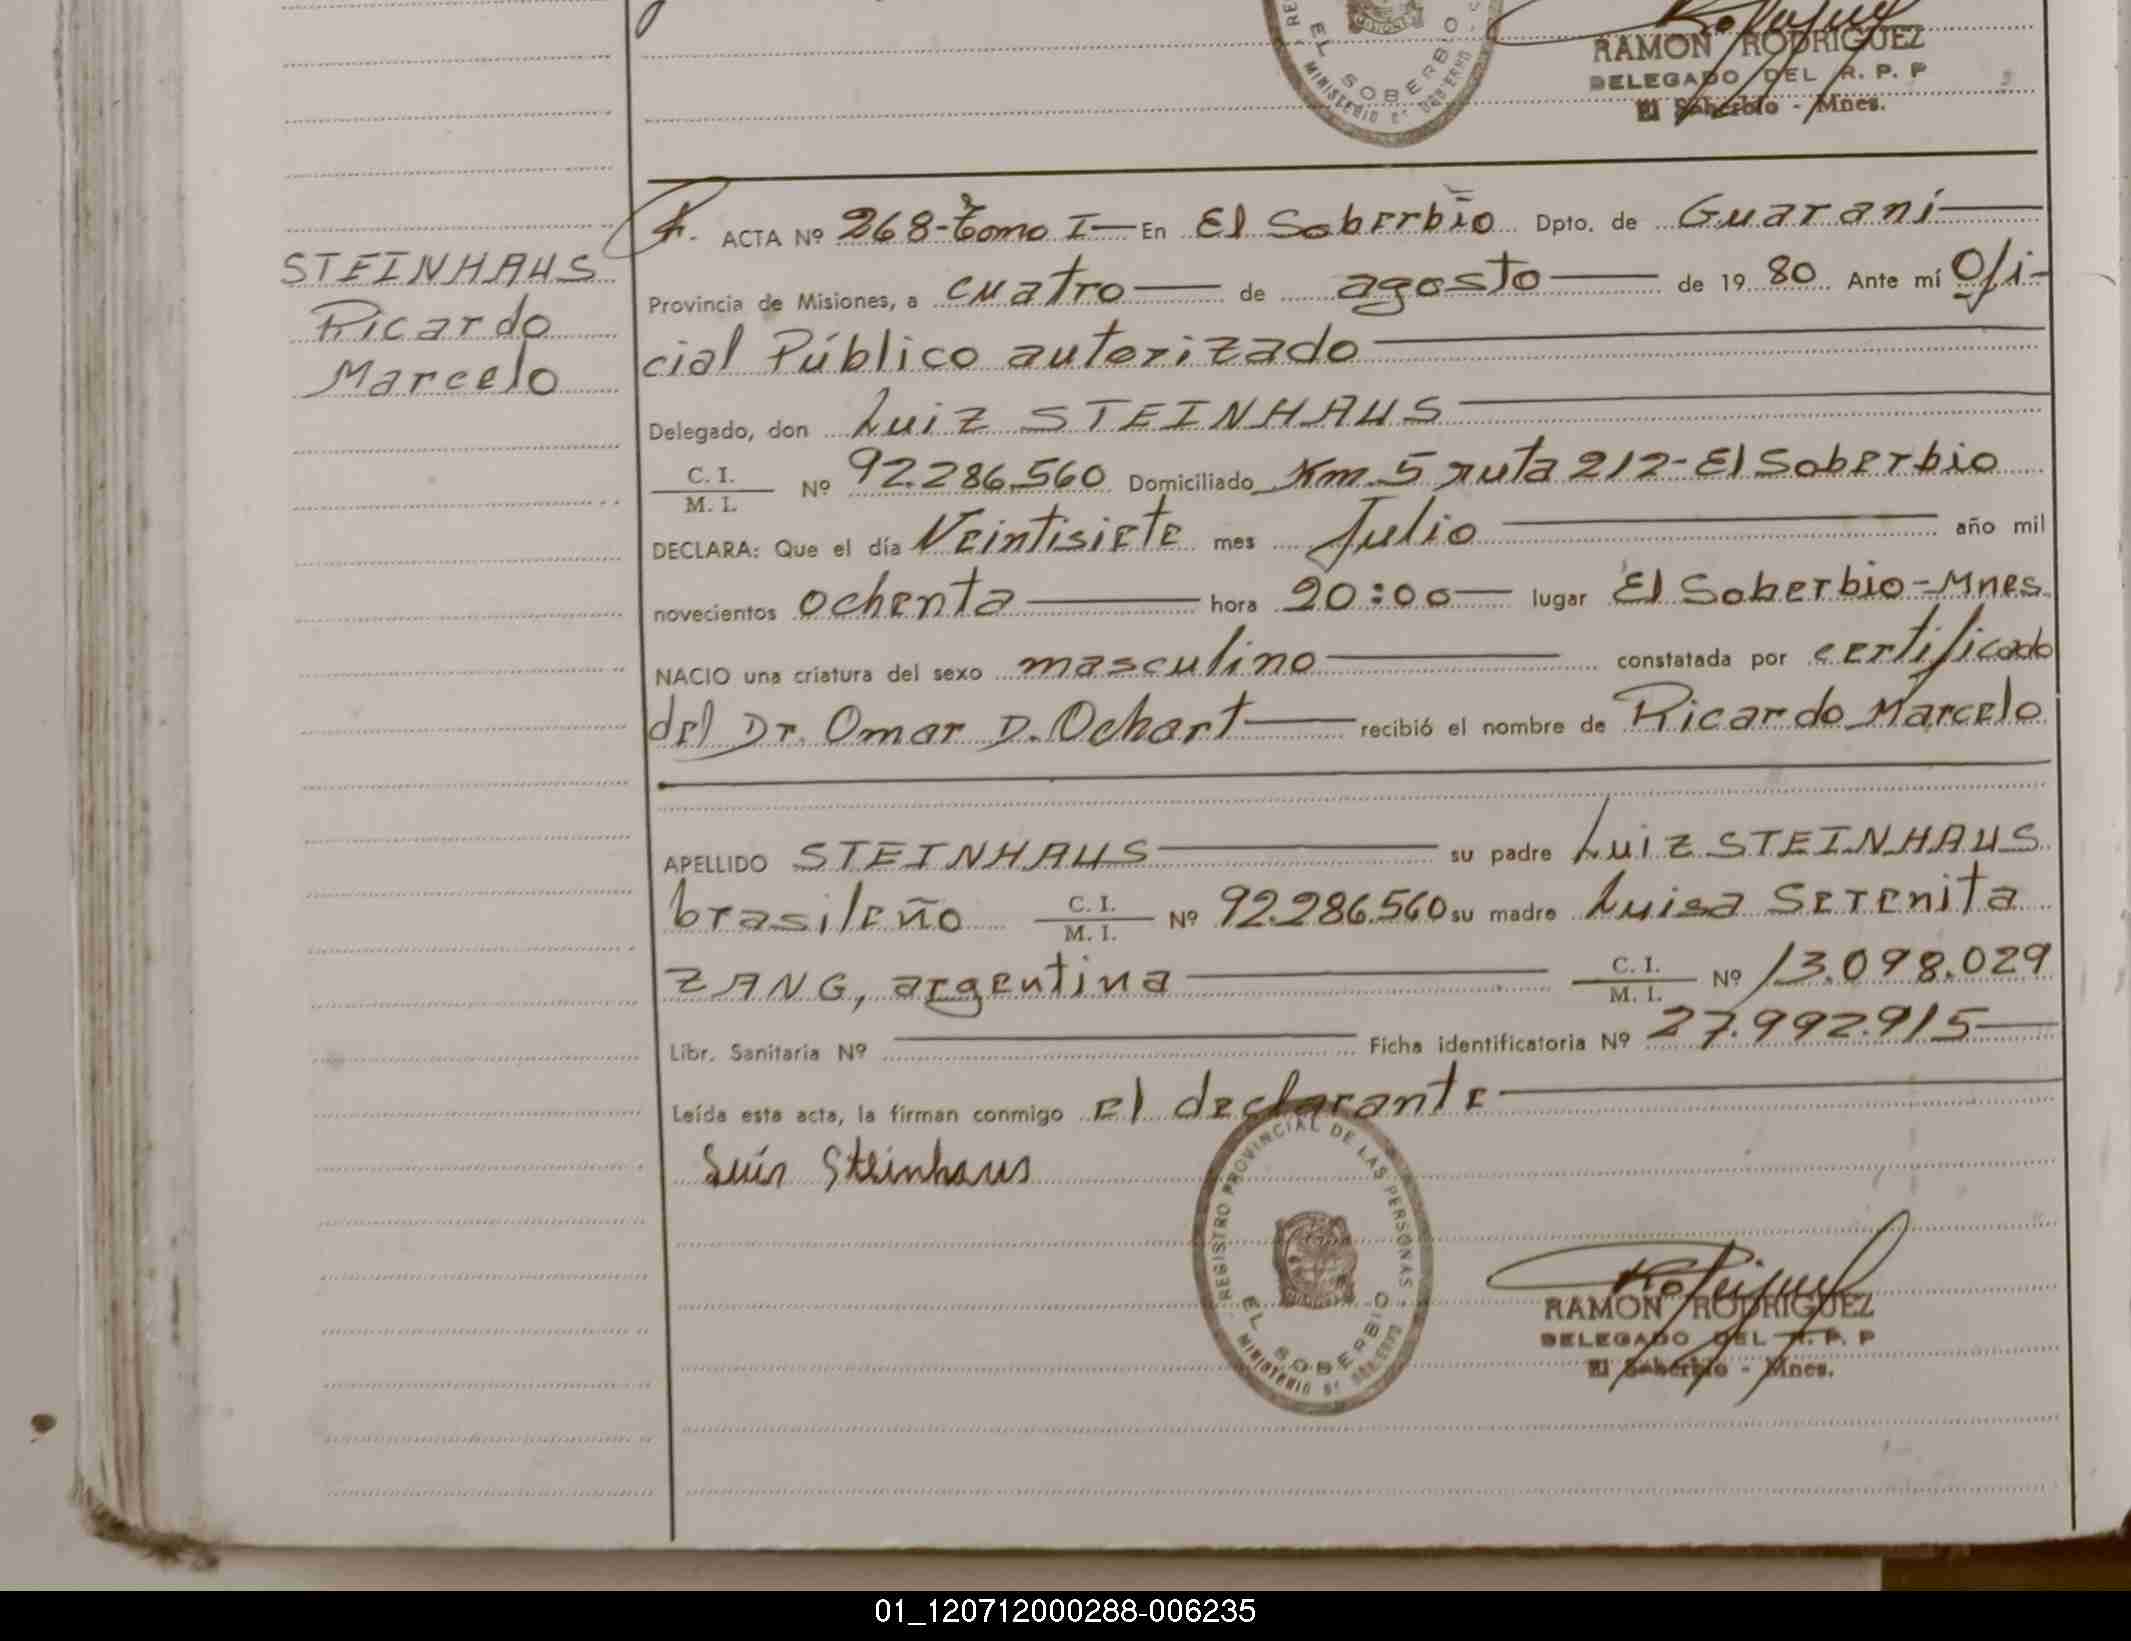 EL SOBERBIO
MINISTERIO DE GOBIERNO
RAMON RODRIGUEZ
DELEGADO DEL R. P. P
El Soberbio - Mnes.
STEINHAUS
Ricardo
Marcelo
ACTA Nº 268-Tomo I— En El Soberbio Dpto. de Guaraní—
Provincia de Misiones, a cuatro— de agosto— de 19 80 Ante mí Ofi-
cial Público autorizado—
Delegado, don Luiz STEINHAUS—
C. I.
M. I. Nº 92.286.560 Domiciliado Km. 5 ruta 212-El Soberbio
DECLARA: Que el día Veintisiete mes Julio— año mil
novecientos ochenta— hora 20:00— lugar El Soberbio-Mnes.
NACIO una criatura del sexo masculino— constatada por certificado
del Dr. Omar D. Ochart— recibió el nombre de Ricardo Marcelo
APELLIDO STEINHAUS— su padre Luiz STEINHAUS
brasileño C. I.
M. I. Nº 92.286.560 su madre Luisa Serenita
ZANG, argentina— C. I.
M. I. Nº 13.098.029
Libr. Sanitaria Nº — Ficha identificatoria Nº 27.992.915—
Leída esta acta, la firman conmigo el declarante—
Luís Steinhaus
REGISTRO PROVINCIAL DE LAS PERSONAS
EL SOBERBIO
MINISTERIO DE GOBIERNO
RAMON RODRIGUEZ
DELEGADO DEL R. P. P
El Soberbio - Mnes.
01_120712000288-006235